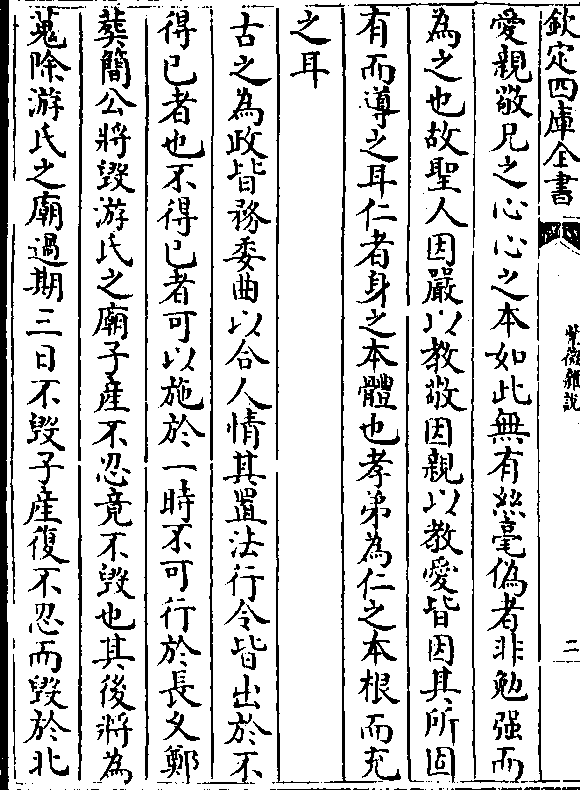 欽定四庫全書
紫微雜說
二
愛親敬兄之心心之本如此無有絲毫偽者非勉强而
為之也故聖人因嚴以教敬因親以教愛皆因其所固
有而導之耳仁者身之本體也孝弟為仁之本根而充
之耳
古之為政皆務委曲以合人情其置法行令皆出於不
得已者也不得已者可以施於一時不可行於長久鄭
葬簡公將毀游氏之廟子產不忍竟不毀也其後將為
蒐除游氏之廟過期三日不毀子產復不忍而毀於北